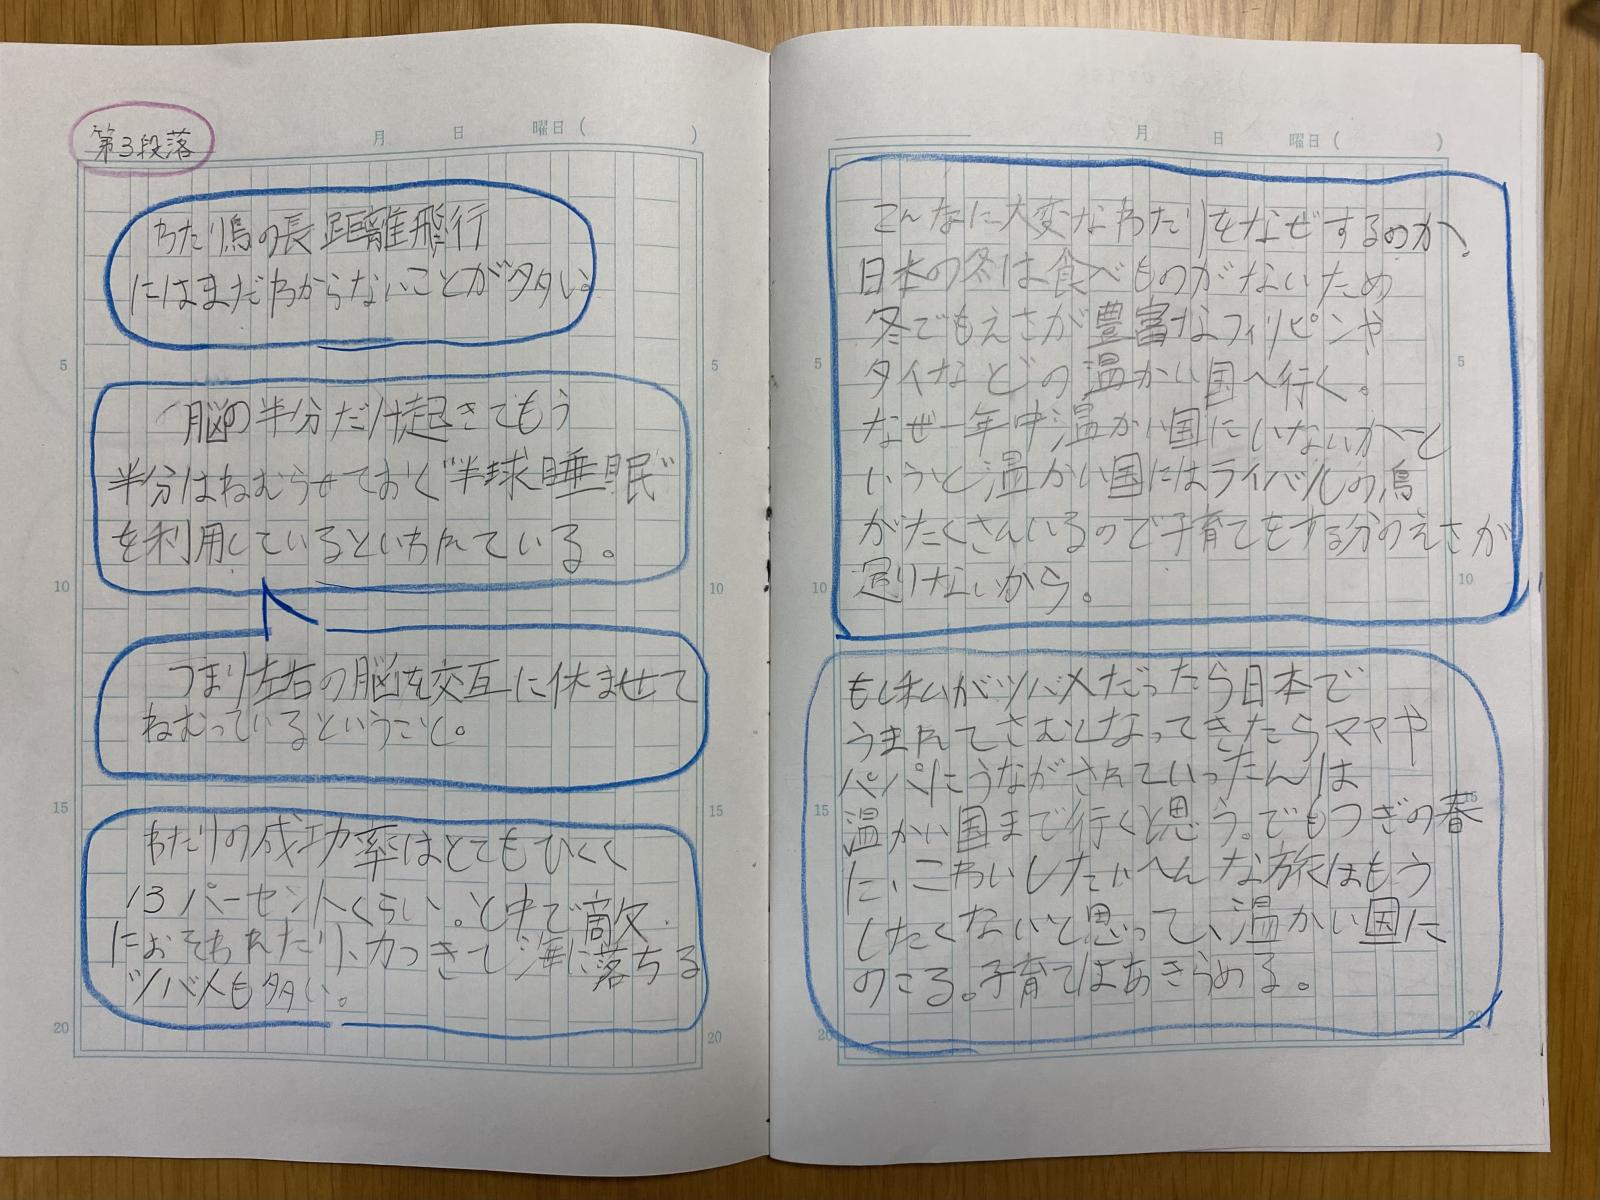 月 日 曜日 ( )
第3段落
わたり鳥の長距離飛行
にはまだわからないことが多い。
5 5
脳の半分だけ起きてもう
半分はねむらせておく"半球睡眠"
を利用しているといわれている。
10 10
つまり左右の脳を交互に休ませて
ねむっているということ。
15 15
わたりの成功率はとてもひくく
13パーセントくらい。と中で敵
におそわれたり、力つきて海に落ちる
ツバメも多い。
20 20
月 日 曜日 ( )
こんなに大変なわたりをなぜするのか、
日本の冬は食べものがないため
冬でもえさが豊富なフィリピンや
5 5
タイなどの温かい国へ行く。
なぜ一年中温かい国にいないかと
いうと温かい国にはライバルの鳥
がたくさんいるので子育てをする分のえさが
10 10
足りないから。
もし私がツバメだったら日本で
うまれてさむくなってきたらママや
パパにうながされていったんは
15 15
温かい国まで行くと思う。でもつぎの春
に、こわいしたいへんな旅はもう
したくないと思って、温かい国に
のこる。子育てはあきらめる。
20 20